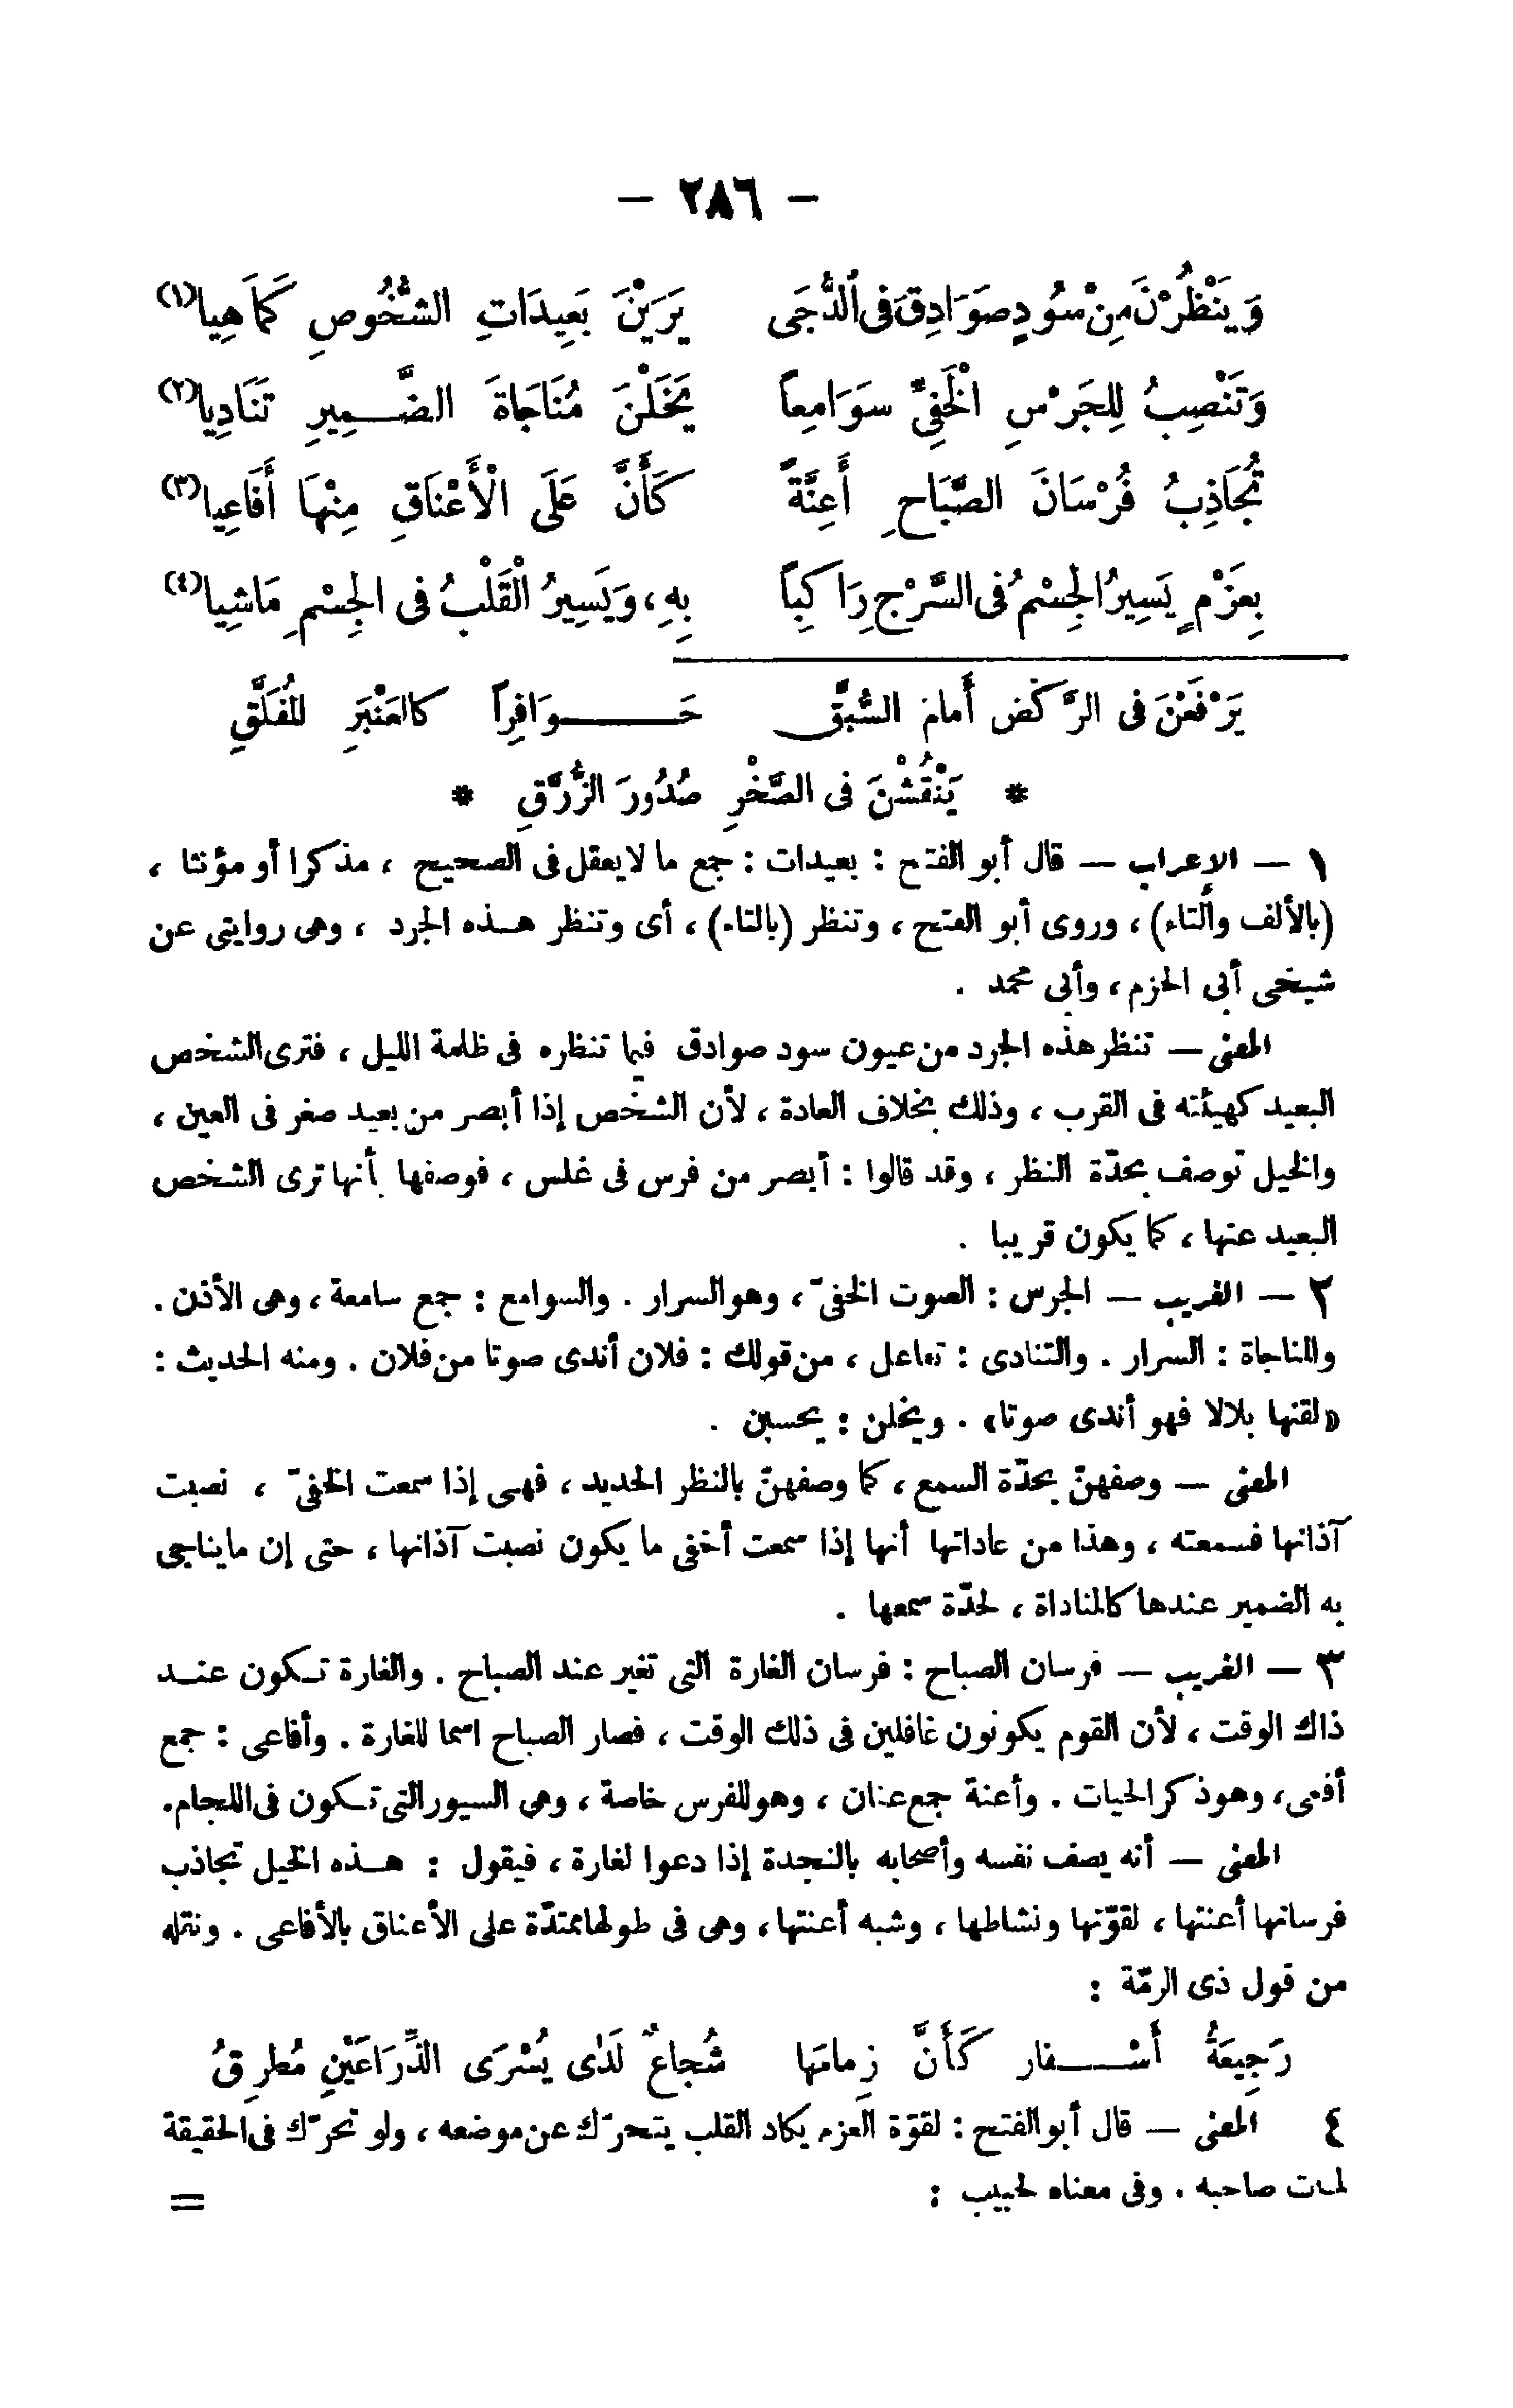 — ٢٨٦ —
وَيَنْظُرْنَ مِنْ سُودٍ صَوَادِقَ فى ٱلدُّجَى يَرَيْنَ بَعِيدَاتِ الشُّخُوصِ كَمَا هِيا(١)
وَتَنْصِبُ لِلجَرْسِ الْخَفِىِّ سوَامِعاً يَخَلْنَ مُنَاجَاةَ الضَّمِيرِ تَنَادِيا(٢)
تُجَاذِبُ فُرْسَانَ الصَّبَاحِ أَعِنَّةً كَأَنَّ عَلَى الْأَعْنَاقِ مِنْهَا أَفَاعِيا(٣)
بِعَزْمٍ يَسِيرُ الجِسْمُ فى السَّرْجِ رَاكِباً بِهِ، وَيَسِيرُ الْقَلْبُ فى الجِسْمِ مَاشِيا(٤)
يَرْفَعْنَ فى الرَّكْضِ أَمامَ السُّبَّقِ حَوَافِراً كالعَنْبَرِ المُفَلَّقِ
* يَنْقُشْنَ فى الصَّخْرِ صُدُورَ الزُّرَّقِ *
١ — الإعراب — قال أبو الفتح : بعيدات : جمع ما لا يعقل فى الصحيح ، مذكرا أو مؤنثا ،
(بالألف والتاء) ، وروى أبو الفتح ، وتنظر (بالتاء) ، أى وتنظر هذه الجرد ، وهى روايتى عن
شيخى أبى الحزم ، وأبى محمد .
المعنى — تنظر هذه الجرد من عيون سود صوادق فيما تنظره فى ظلمة الليل ، فترى الشخص
البعيد كهيئته فى القرب ، وذلك بخلاف العادة ، لأن الشخص إذا أبصر من بعيد صغر فى العين ،
والخيل توصف بحدّة النظر ، وقد قالوا : أبصر من فرس فى غلس ، فوصفها بأنها ترى الشخص
البعيد عنها ، كما يكون قريبا .
٢ — الغريب — الجرس : الصوت الخفىّ ، وهو السرار . والسوامع : جمع سامعة ، وهى الأذن .
والمناجاة : السرار . والتنادى : تفاعل ، من قولك : فلان أندى صوتا من فلان . ومنه الحديث :
«لقنها بلالا فهو أندى صوتا» . ويخلن : يحسبن .
المعنى — وصفهنّ بحدّة السمع ، كما وصفهنّ بالنظر الحديد ، فهى إذا سمعت الخفىّ ، نصبت
آذانها فسمعته ، وهذا من عاداتها أنها إذا سمعت أخفى ما يكون نصبت آذانها ، حتى إن مايناجى
به الضمير عندها كالمناداة ، لحدّة سمعها .
٣ — الغريب — فرسان الصباح : فرسان الغارة التى تغير عند الصباح . والغارة تكون عند
ذاك الوقت ، لأن القوم يكونون غافلين فى ذلك الوقت ، فصار الصباح اسما للغارة . وأفاعى : جمع
أفعى ، وهو ذكر الحيات . وأعنة جمع عنان ، وهو للفرس خاصة ، وهى السيور التى تكون فى اللجام .
المعنى — أنه يصف نفسه وأصحابه بالنجدة إذا دعوا لغارة ، فيقول : هذه الخيل تجاذب
فرسانها أعنتها ، لقوّتها ونشاطها ، وشبه أعنتها ، وهى فى طولها ممتدّة على الأعناق بالأفاعى . ونقله
من قول ذى الرمّة :
رَجِيعَةُ أَسْفار كَأَنَّ زِمامَها شُجاعٌ لَدَى يُسْرَى الذِّرَاعَيْنِ مُطرِقُ
٤ المعنى — قال أبو الفتح : لقوّة العزم يكاد القلب يتحرّك عن موضعه ، ولو تحرّك فى الحقيقة
لمات صاحبه . وفى معناه لحبيب :
=